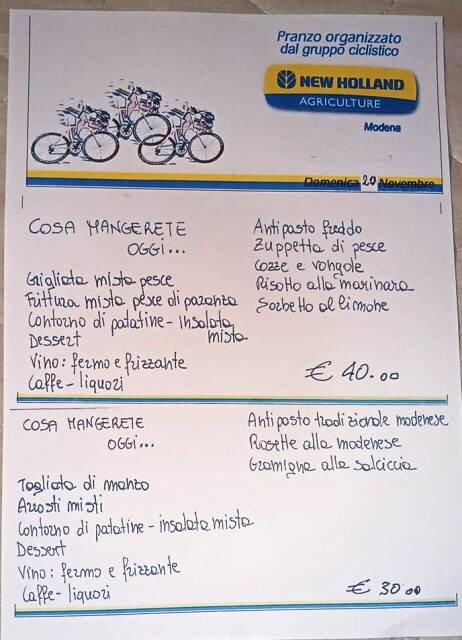 Pranzo organizzato
dal gruppo ciclistico
NEW HOLLAND
AGRICULTURE
Modena
Domenica 20 Novembre
COSA MANGERETE
OGGI...
Antipasto freddo
Zuppetta di pesce
Cozze e vongole
Risotto alla marinara
Sorbetto al limone
Grigliata mista pesce
Frittura mista pesce di paranza
Contorno di patatine - insalata
mista
Dessert
Vino: fermo e frizzante
Caffe - liquori
€ 40.00
COSA MANGERETE
OGGI...
Antipasto tradizionale modenese
Rosette alla modenese
Gramigna alla salciccia
Tagliata di manzo
Arrosti misti
Contorno di patatine - insalata mista
Dessert
Vino: fermo e frizzante
Caffe - liquori
€ 30.00